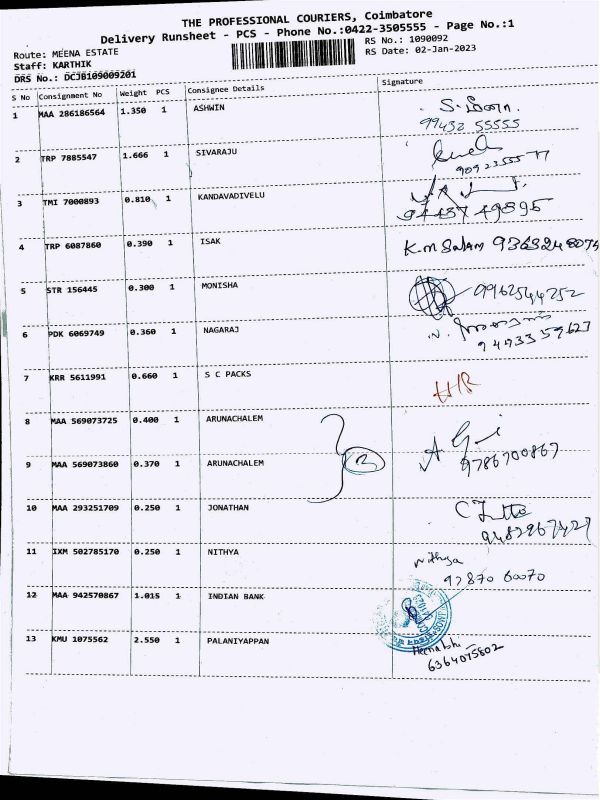 THE PROFESSIONAL COURIERS, Coimbatore
Delivery Runsheet - PCS - Phone No.:0422-3505555 - Page No.:1
Route: MEENA ESTATE
RS No.: 1090092
Staff: KARTHIK
RS Date: 02-Jan-2023
DRS No.: DCJB109009201
S No Consignment No Weight PCS Consignee Details Signature
1 MAA 286186564 1.350 1 ASHWIN
99432 55555
2 TRP 7885547 1.666 1 SIVARAJU
3 TMI 7000893 0.810 1 KANDAVADIVELU
94437 49895
4 TRP 6087860 0.390 1 ISAK K.m Salam
5 STR 156445 0.300 1 MONISHA 09962544252
6 PDK 6069749 0.360 1 NAGARAJ
7 KRR 5611991 0.660 1 S C PACKS HR
8 MAA 569073725 0.400 1 ARUNACHALEM
9 MAA 569073860 0.370 1 ARUNACHALEM 9786700867
10 MAA 293251709 0.250 1 JONATHAN
11 IXM 502785170 0.250 1 NITHYA Nithya
97870 60070
12 MAA 942570867 1.015 1 INDIAN BANK
13 KMU 1075562 2.550 1 PALANIYAPPAN
6364075802